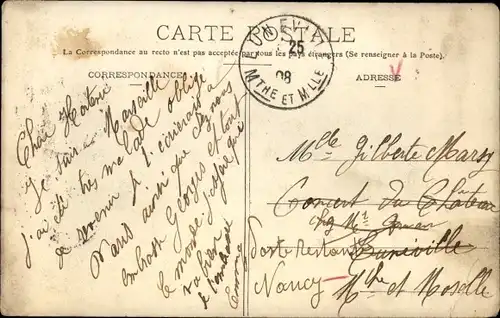 CARTE POSTALE
La Correspondance au recto n'est pas acceptée par tous les pays étrangers (Se renseigner à la Poste).
CORRESPONDANCE
ADRESSE
LUNEVILLE
25
08
MTHE ET MLLE
Chère Hortense
Je suis à Marseille
j'ai été très malade obligé
de revenir à
Paris ainsi que
embrasse Georges et tout
le monde j'espère que
va bien
Mlle Gilberte Marsy
Concert du Château
chez Mr
Poste Restante Lunéville
Nancy Mthe et Moselle